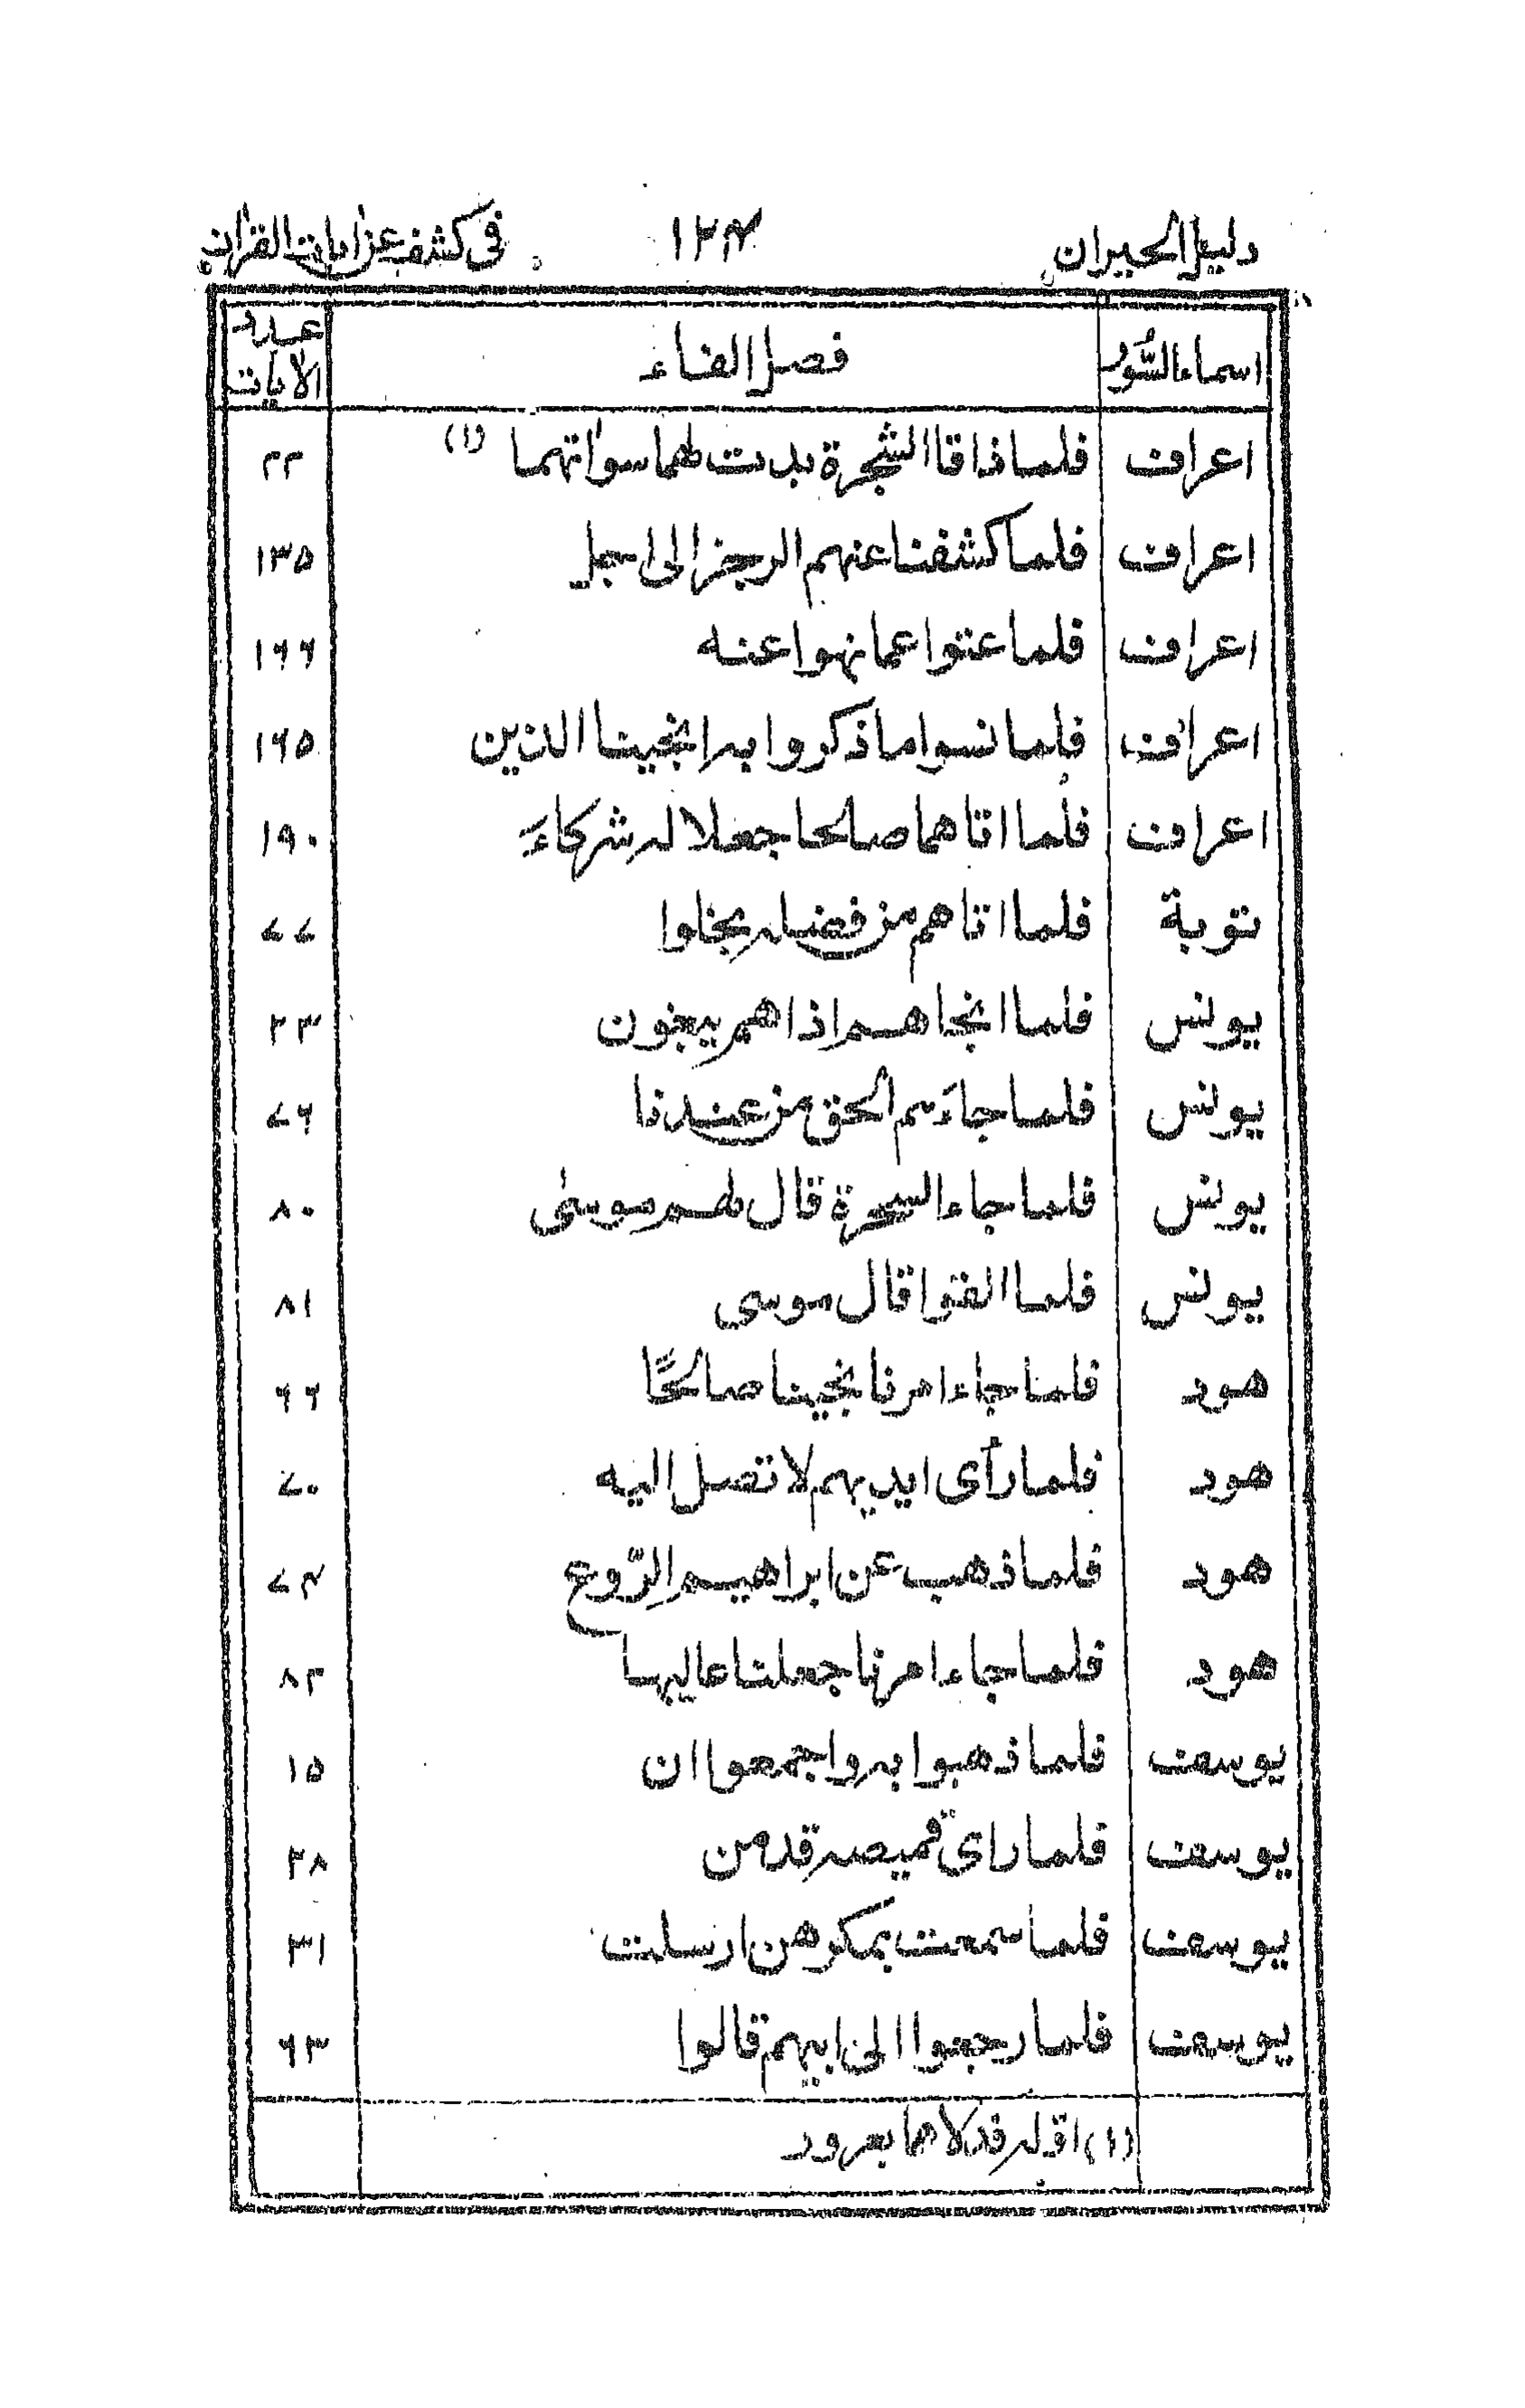 دليل الحيران ١٢٤ في كشف عن آيات القرآن
اسماء السُّور فصل الفاء عدد الآيات
اعراف فلما ذاقا الشجرة بدت لهما سواٰتهما (١) ٢٢
اعراف فلما كشفنا عنهم الرجز الى اجل ١٣٥
اعراف فلما عتوا عما نهوا عنه ١٦٦
اعراف فلما نسوا ما ذكروا به انجينا الذين ١٦٥
اعراف فلما اتاهما صالحا جعلا له شركاءَ ١٩٠
توبة فلما اتاهم من فضله بخلوا ٧٧
يونس فلما انجاهم اذا هم يبغون ٢٣
يونس فلما جاءَهم الحق من عندنا ٧٦
يونس فلما جاء السحرة قال لهم موسىٰ ٨٠
يونس فلما القوا قال موسى ٨١
هود فلما جاء امرنا نجينا صالحًا ٦٦
هود فلما رآى ايديهم لا تصل اليه ٧٠
هود فلما ذهب عن ابراهيم الرّوع ٧٤
هود فلما جاء امرنا جعلنا عاليها ٨٢
يوسف فلما ذهبوا به واجتمعوا ان ١٥
يوسف فلما راى قميصه قد من ٢٨
يوسف فلما سمعت بمكرهن ارسلت ٣١
يوسف فلما رجعوا الى ابيهم قالوا ٦٣
(١) اوله فدلاهما بغرور